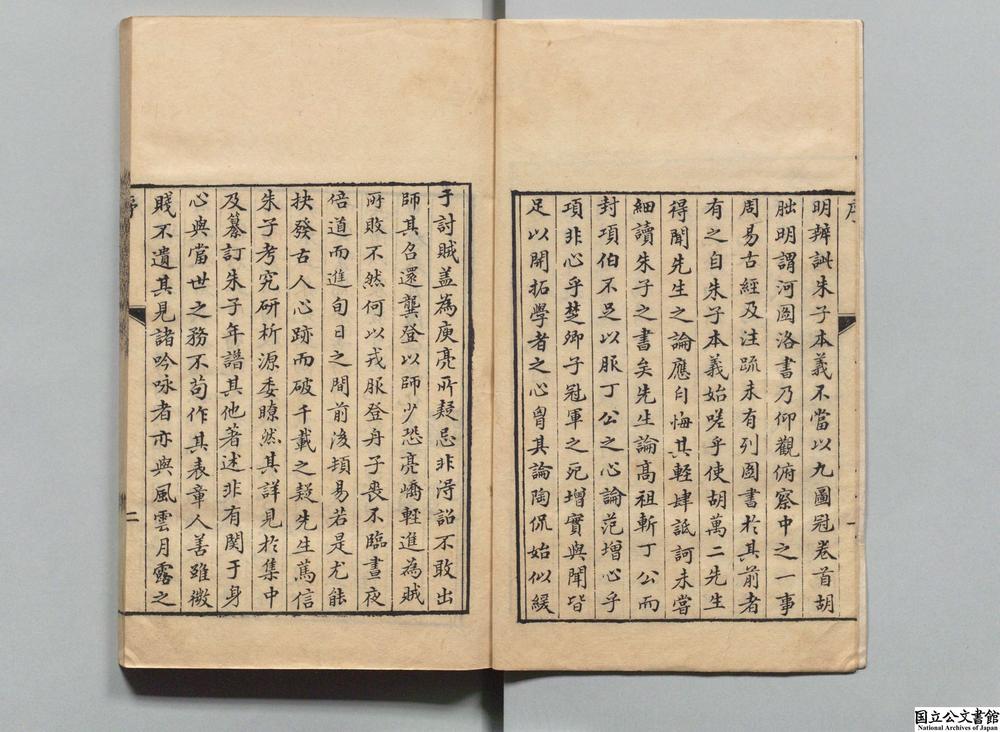 明辨訿朱子本義不當以九圖冠卷首胡
朏明謂河圖洛書乃仰觀俯察中之一事
周易古經及注疏未有列圖書於其前者
有之自朱子本義始嗟乎使胡萬二先生
得聞先生之論應自悔其輕肆詆訶未嘗
細讀朱子之書矣先生論高祖斬丁公而
封項伯不足以服丁公之心論范增心乎
項非心乎楚卿子冠軍之死增實與聞皆
足以開拓學者之心胷其論陶侃始似緩
于討賊盖為庾亮所疑忌非淂詔不敢出
師其召還龔登以師少恐亮嶠輕進為賊
所敗不然何以戎服登舟子喪不臨晝夜
倍道而進旬日之間前後頓易若是尤能
抉發古人心跡而破千載之疑先生篤信
朱子考究研析源委瞭然其詳見於集中
及纂訂朱子年譜其他著述非有関于身
心與當世之務不苟作其表章人善雖微
賤不遺其見諸吟咏者亦與風雲月露之
序
一
序
二
国立公文書館
National Archives of Japan